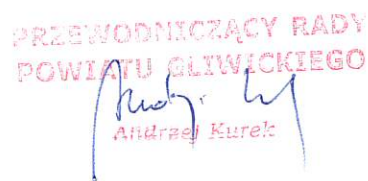 PRZEWODNICZĄCY RADY
POWIATU GLIWICKIEGO
Andrzej Kurek